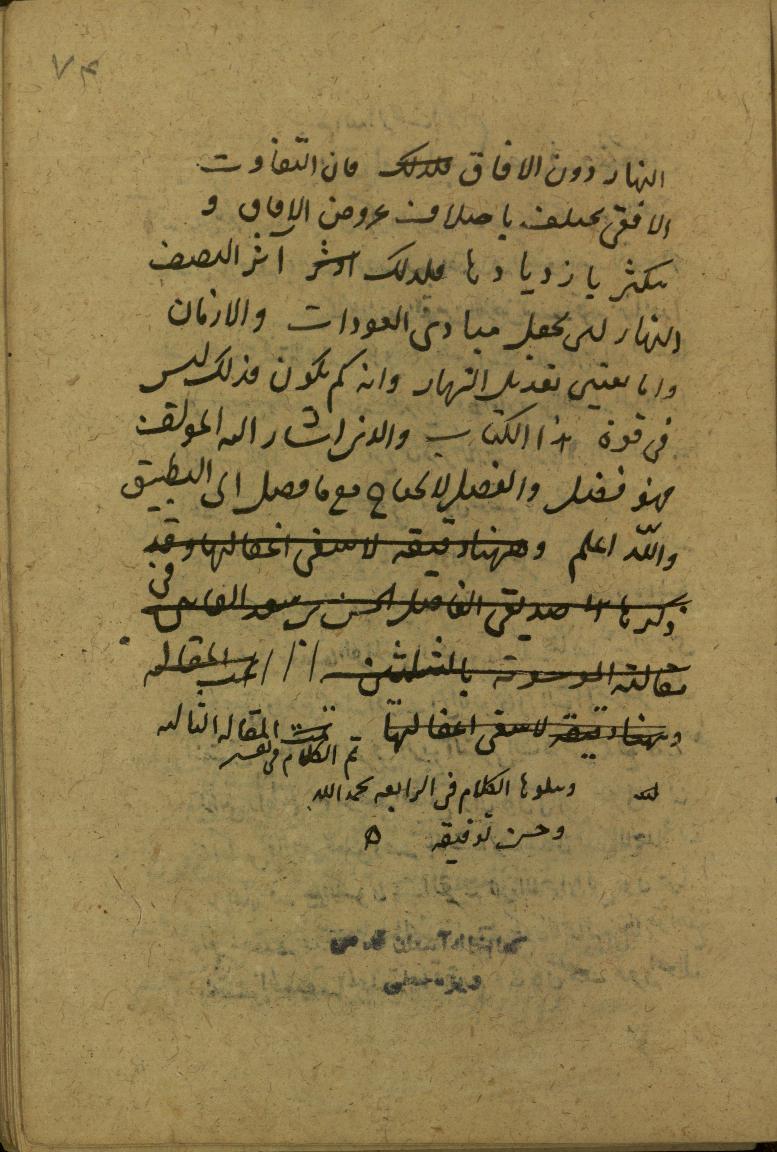 ٧٤
النهار دون الافاق فلذلك فان التفاوت
الافقى يختلف باختلاف عروض الافاق و
يتكثر بازديادها فلذلك اوثر آثر النصف
النهار لان يجعل مبادى العودات والازمان
واما تعيين تعديل النهار وانه كم يكون فذلك ليس
فى قوة هذا الكتاب والذى اشار اليه المولف
فهو فضل والفصل لا يحتاج مع ما فصل الى التطبيق
والله اعلم وههنا دقيقه لا ينبغى اغفالها وقد
ذكرها صديقى الفاضل الحسن بن فى
مقالته الموسومه تمت المقاله
وههنا دقيقه لا ينبغى اغفالها تمت المقاله الثالثه
تم الكلام فى تفسير
ويتلوها الكلام فى الرابعه بحمد الله
وحسن توفيقه ه